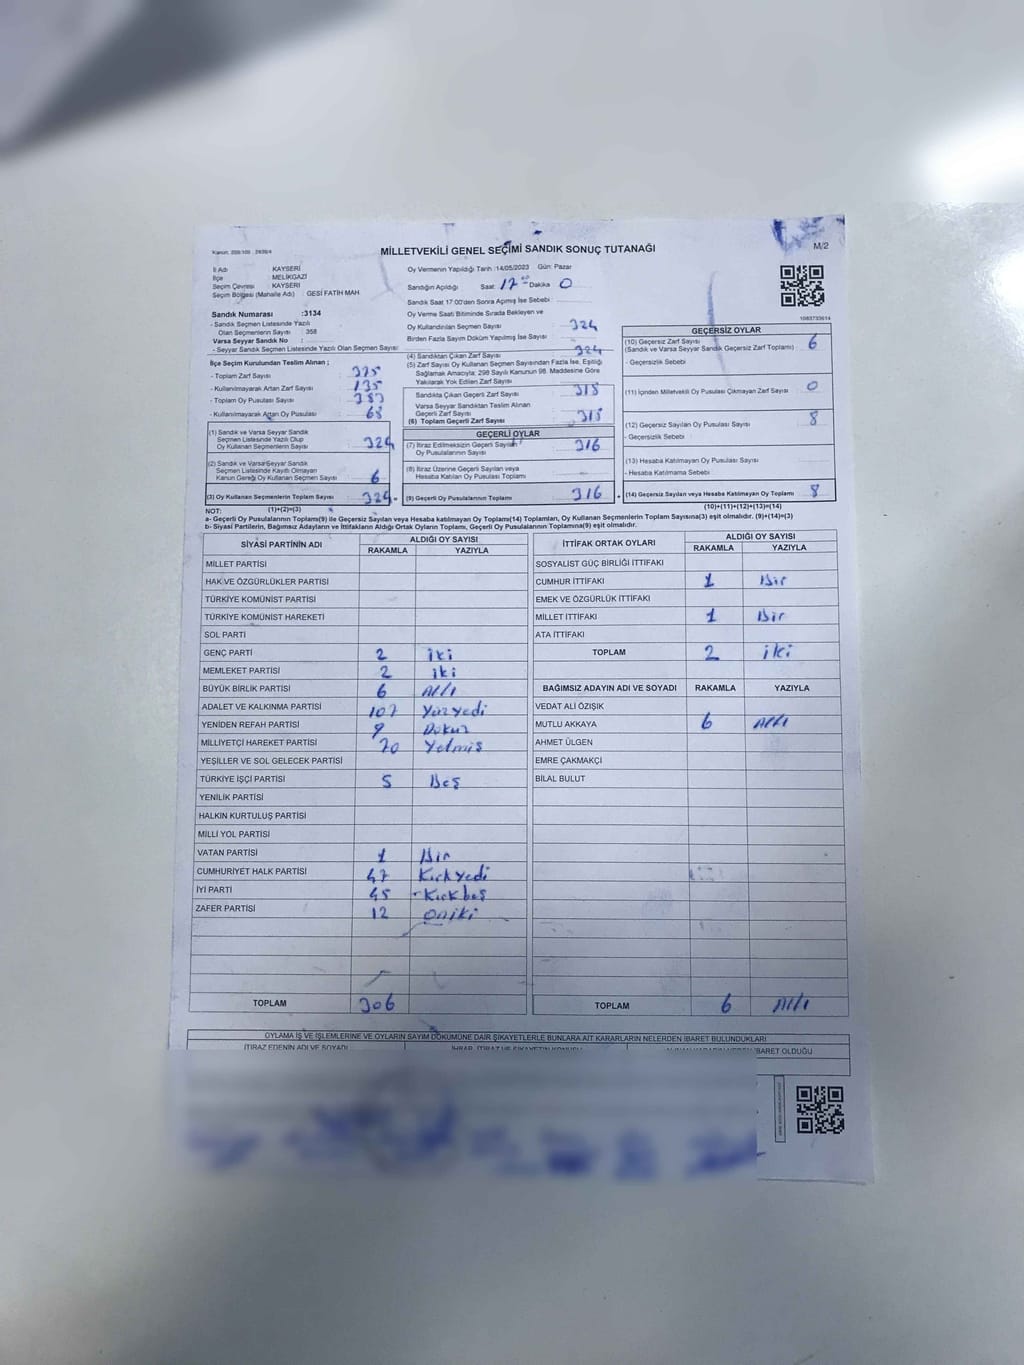 Kanun: 298/105 - 2839/4
MİLLETVEKİLİ GENEL SEÇİMİ SANDIK SONUÇ TUTANAĞI
M/2
İl Adı KAYSERİ
İlçe MELİKGAZİ
Seçim Çevresi KAYSERİ
Seçim Bölgesi (Mahalle Adı) : GESİ FATİH MAH.
Sandık Numarası :3134
- Sandık Seçmen Listesinde Yazılı
Olan Seçmenlerin Sayısı : 358
Varsa Seyyar Sandık No :
- Seyyar Sandık Seçmen Listesinde Yazılı Olan Seçmen Sayısı
Oy Vermenin Yapıldığı Tarih :14/05/2023 Gün: Pazar
Sandığın Açıldığı Saat 17 00 Dakika 0
Sandık Saat 17:00'den Sonra Açımış İse Sebebi
Oy Verme Saati Bitiminde Sırada Bekleyen ve
Oy Kullandırılan Seçmen Sayısı 324
Birden Fazla Sayım Döküm Yapılmış İse Sayısı
1083733614
İlçe Seçim Kurulundan Teslim Alınan ;
- Toplam Zarf Sayısı : 375
- Kullanılmayarak Artan Zarf Sayısı : 135
- Toplam Oy Pusulası Sayısı : 383
- Kullanılmayarak Artan Oy Pusulası : 68
(1) Sandık ve Varsa Seyyar Sandık
Seçmen Listesinde Yazılı Olup
Oy Kullanan Seçmenlerin Sayısı 324
(2) Sandık ve Varsa Seyyar Sandık
Seçmen Listesinde Kayıtlı Olmayan
Kanun Gereği Oy Kullanan Seçmen Sayısı 6
(3) Oy Kullanan Seçmenlerin Toplam Sayısı 324
(4) Sandıktan Çıkan Zarf Sayısı 324
(5) Zarf Sayısı Oy Kullanan Seçmen Sayısından Fazla İse, Eşitliği
Sağlamak Amacıyla; 298 Sayılı Kanunun 98. Maddesine Göre
Yakılarak Yok Edilen Zarf Sayısı
Sandıkta Çıkan Geçerli Zarf Sayısı 318
Varsa Seyyar Sandıktan Teslim Alınan
Geçerli Zarf Sayısı
(6) Toplam Geçerli Zarf Sayısı 318
GEÇERLİ OYLAR
(7) İtiraz Edilmeksizin Geçerli Sayılan
Oy Pusulalarının Sayısı 316
(8) İtiraz Üzerine Geçerli Sayılan veya
Hesaba Katılan Oy Pusulalarının Toplamı
(9) Geçerli Oy Pusulalarının Toplamı 316
GEÇERSİZ OYLAR
(10) Geçersiz Zarf Sayısı
(Sandık ve Varsa Seyyar Sandık Geçersiz Zarf Toplamı) : 6
- Geçersizlik Sebebi :
(11) İçinden Milletvekili Oy Pusulası Çıkmayan Zarf Sayısı 0
(12) Geçersiz Sayılan Oy Pusulası Sayısı 8
- Geçersizlik Sebebi :
(13) Hesaba Katılmayan Oy Pusulası Sayısı
- Hesaba Katılmama Sebebi :
(14) Geçersiz Sayılan veya Hesaba Katılmayan Oy Toplamı 8
NOT: (1)+(2)=(3) (10)+(11)+(12)+(13)=(14)
a- Geçerli Oy Pusulalarının Toplamı(9) ile Geçersiz Sayılan veya Hesaba katılmayan Oy Toplamı(14) Toplamları, Oy Kullanan Seçmenlerin Toplam Sayısına(3) eşit olmalıdır. (9)+(14)=(3)
b- Siyasi Partilerin, Bağımsız Adayların ve İttifakların Aldığı Ortak Oyların Toplamı, Geçerli Oy Pusulalarının Toplamına(9) eşit olmalıdır.
SİYASİ PARTİNİN ADI ALDIĞI OY SAYISI
RAKAMLA YAZIYLA
MİLLET PARTİSİ
HAK VE ÖZGÜRLÜKLER PARTİSİ
TÜRKİYE KOMÜNİST PARTİSİ
TÜRKİYE KOMÜNİST HAREKETİ
SOL PARTİ
GENÇ PARTİ 2 iki
MEMLEKET PARTİSİ 2 iki
BÜYÜK BİRLİK PARTİSİ 6 Altı
ADALET VE KALKINMA PARTİSİ 107 Yüzyedi
YENİDEN REFAH PARTİSİ 9 Dokuz
MİLLİYETÇİ HAREKET PARTİSİ 70 Yetmiş
YEŞİLLER VE SOL GELECEK PARTİSİ
TÜRKİYE İŞÇİ PARTİSİ 5 Beş
YENİLİK PARTİSİ
HALKIN KURTULUŞ PARTİSİ
MİLLİ YOL PARTİSİ
VATAN PARTİSİ 1 Bir
CUMHURİYET HALK PARTİSİ 47 Kırkyedi
İYİ PARTİ 45 Kırkbeş
ZAFER PARTİSİ 12 oniki
TOPLAM 306
İTTİFAK ORTAK OYLARI ALDIĞI OY SAYISI
RAKAMLA YAZIYLA
SOSYALİST GÜÇ BİRLİĞİ İTTİFAKI
CUMHUR İTTİFAKI 1 Bir
EMEK VE ÖZGÜRLÜK İTTİFAKI
MİLLET İTTİFAKI 1 Bir
ATA İTTİFAKI
TOPLAM 2 iki
BAĞIMSIZ ADAYIN ADI VE SOYADI RAKAMLA YAZIYLA
VEDAT ALİ ÖZIŞIK
MUTLU AKKAYA 6 Altı
AHMET ÜLGEN
EMRE ÇAKMAKÇİ
BİLAL BULUT
TOPLAM 6 Altı
OYLAMA İŞ VE İŞLEMLERİNE VE OYLARIN SAYIM DÖKÜMÜNE DAİR ŞİKAYETLERLE BUNLARA AİT KARARLARIN NELERDEN İBARET BULUNDUKLARI
İTİRAZ EDENİN ADI VE SOYADI İHBAR, İTİRAZ VE ŞİKAYETİN KONUSU İBARET OLDUĞU